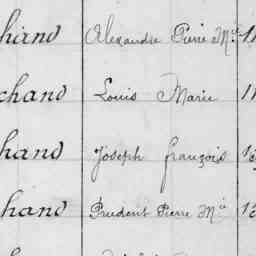 chand Alexandre Pierre Mie
chand Louis Marie
chand Joseph françois
chand Prudent Pierre Mie